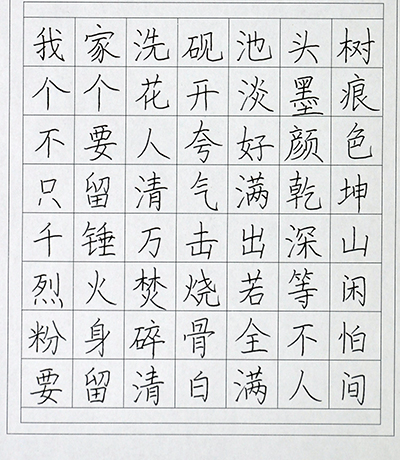 我家洗砚池头树
个个花开淡墨痕
不要人夸好颜色
只留清气满乾坤
千锤万击出深山
烈火焚烧若等闲
粉身碎骨全不怕
要留清白满人间